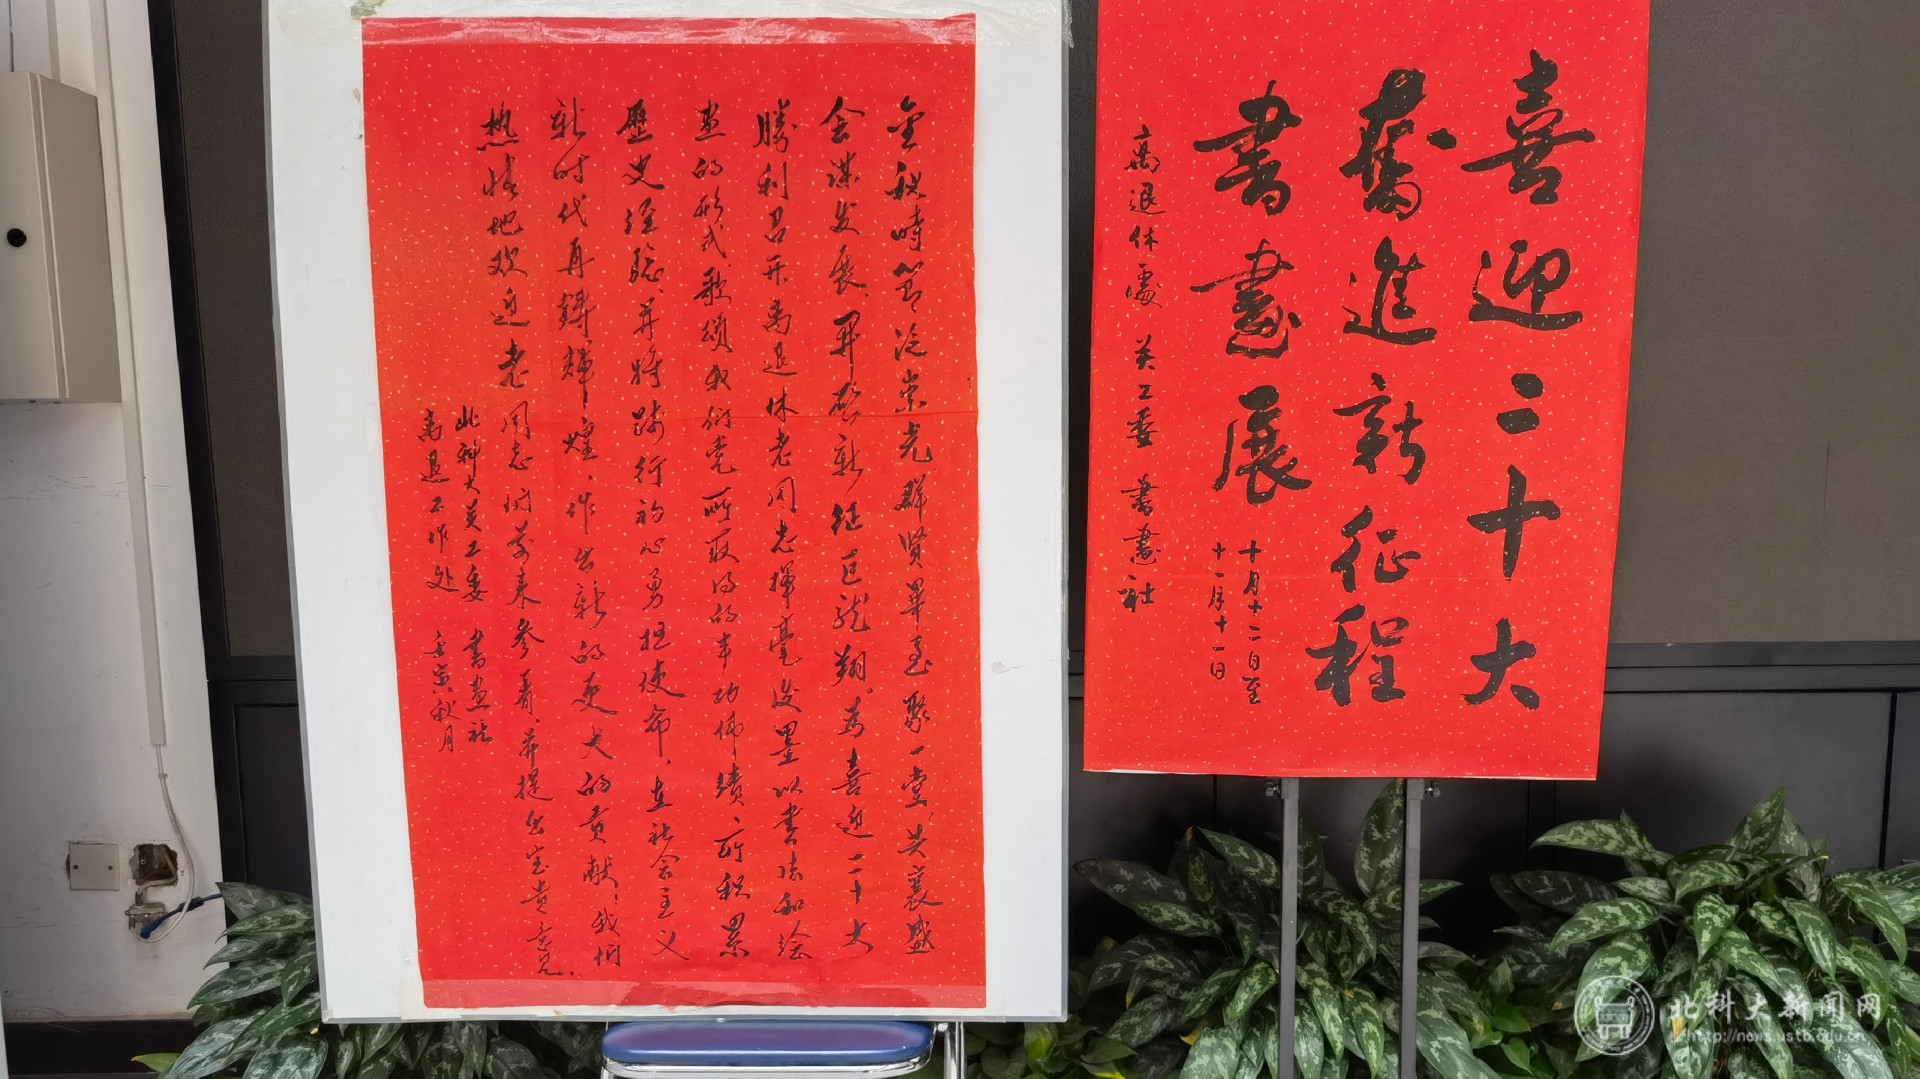 喜迎二十大
奮進新征程
書畫展
十月十二日至
十一月十一日
离退休處 关工委 書畫社
金秋時節泛崇光群贤畢至聚一堂,共襄盛
会謀发展、开啓新征巨龙翔。為喜迎二十大
勝利召开离退休老同志揮毫泼墨以書法和绘
画的形式歌頌我们党所取得的丰功伟績、所积累
歷史经验、并将践行初心勇担使命,在社会主义
新时代再鋳輝煌、作出新的更大的贡献!我们
热情地欢迎老同志们前来参看、并提出宝贵意见.
北科大关工委 書画社
离退工作处 壬寅秋月
北科大新闻网
http://news.ustb.edu.cn